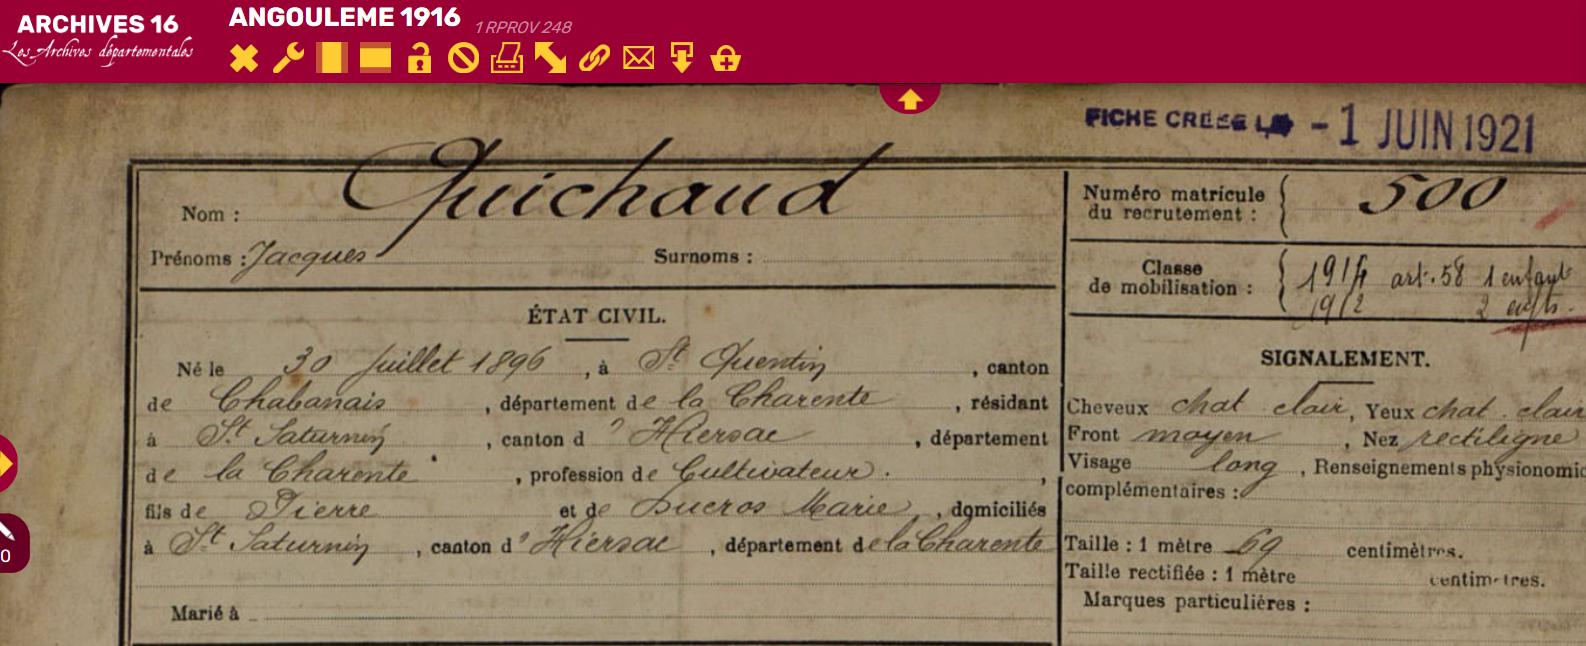 ARCHIVES 16
Les Archives départementales
ANGOULEME 1916 1 RPROV 248
FICHE CRÉÉE LE - 1 JUIN 1921
Nom : Quichaud
Prénoms : Jacques Surnoms :
Numéro matricule du recrutement : 500
Classe de mobilisation : 1914 art. 58 1 enfant
1912 2 enfts.
ÉTAT CIVIL.
Né le 30 Juillet 1896, à St Quentin, canton
de Chabanais, département de la Charente, résidant
à St Saturnin, canton d'Hiersac, département
de la Charente, profession de Cultivateur.,
fils de Pierre et de Ducros Marie, domiciliés
à St Saturnin, canton d'Hiersac, département de la Charente
Marié à
SIGNALEMENT.
Cheveux chat. clair, Yeux chat. clair
Front moyen, Nez rectiligne
Visage long, Renseignements physionomi
complémentaires :
Taille : 1 mètre 69 centimètres.
Taille rectifiée : 1 mètre centimètres.
Marques particulières :
0